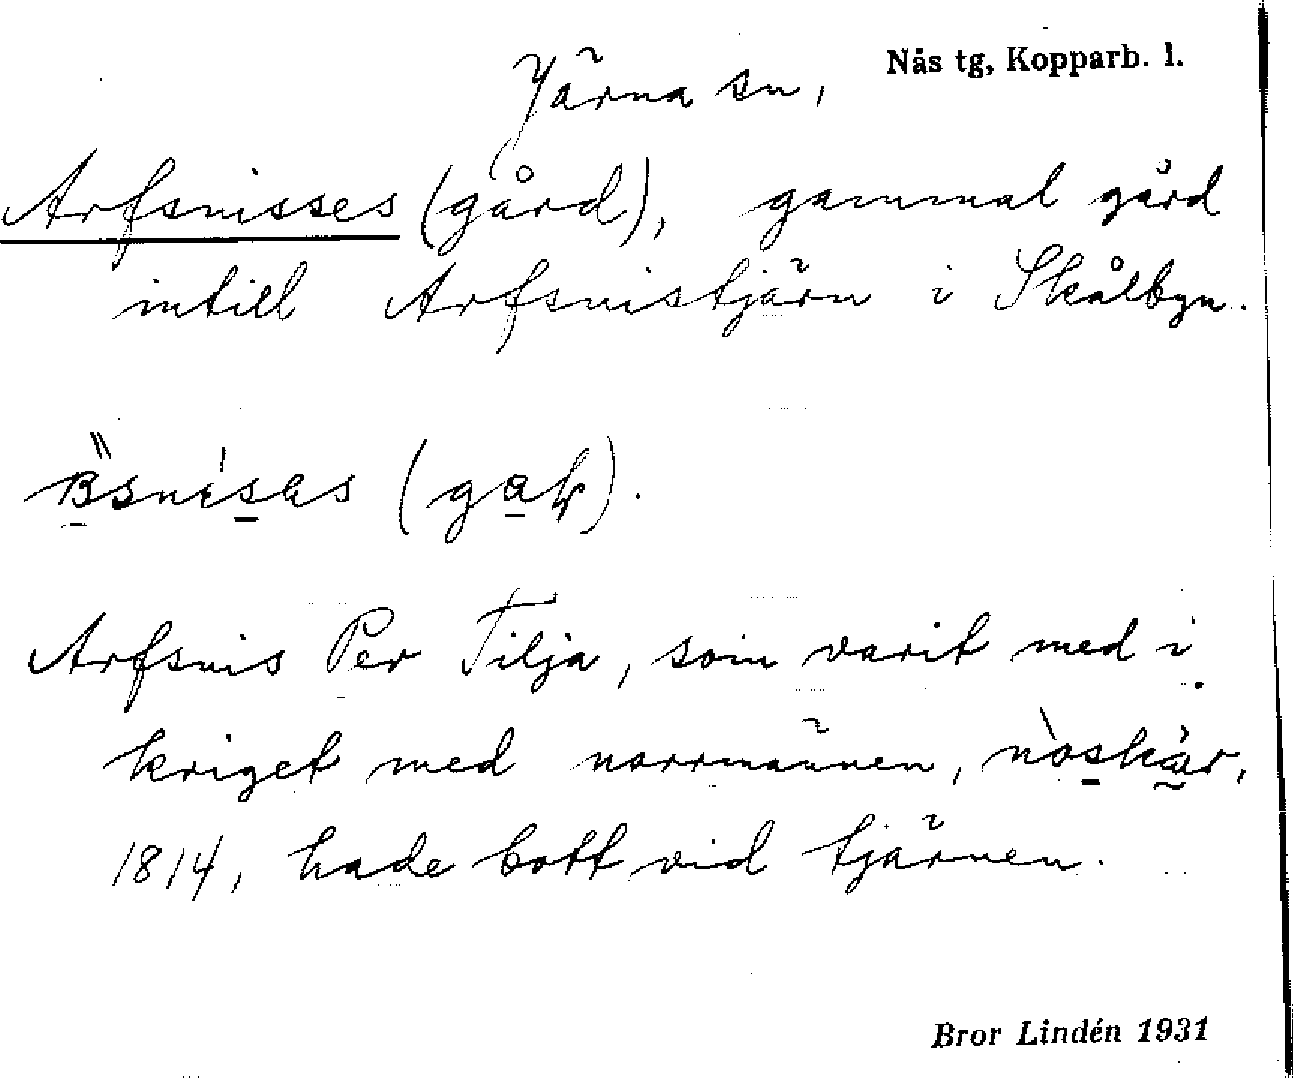 Järna sn,
Nås tg, Kopparb. l.
Arfsnisses (gård), gammal gård
intill Arfsnistjärn i Skålbyn.
Arfsnis Per Tilja, som varit med i
kriget med norrmännen, nòskàr,
1814, hade bott vid tjärnen.
Bror Lindén 1931